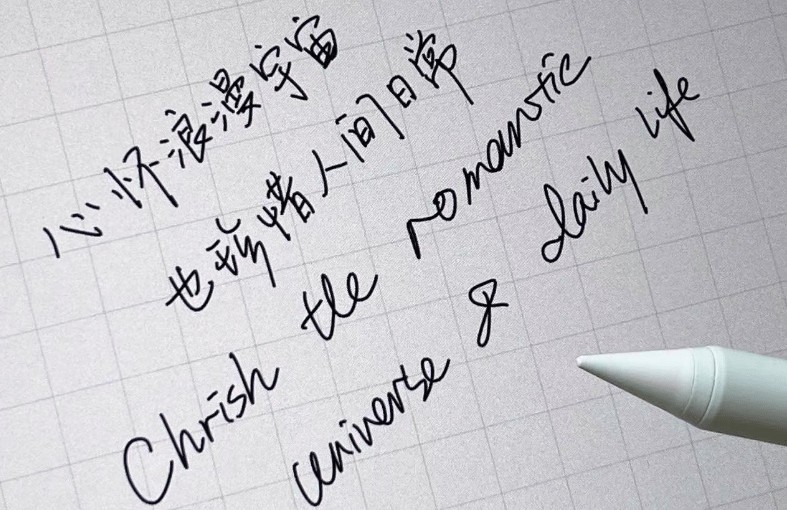 心怀浪漫宇宙
也珍惜人间日常
Chrish the romantic
universe & daily life